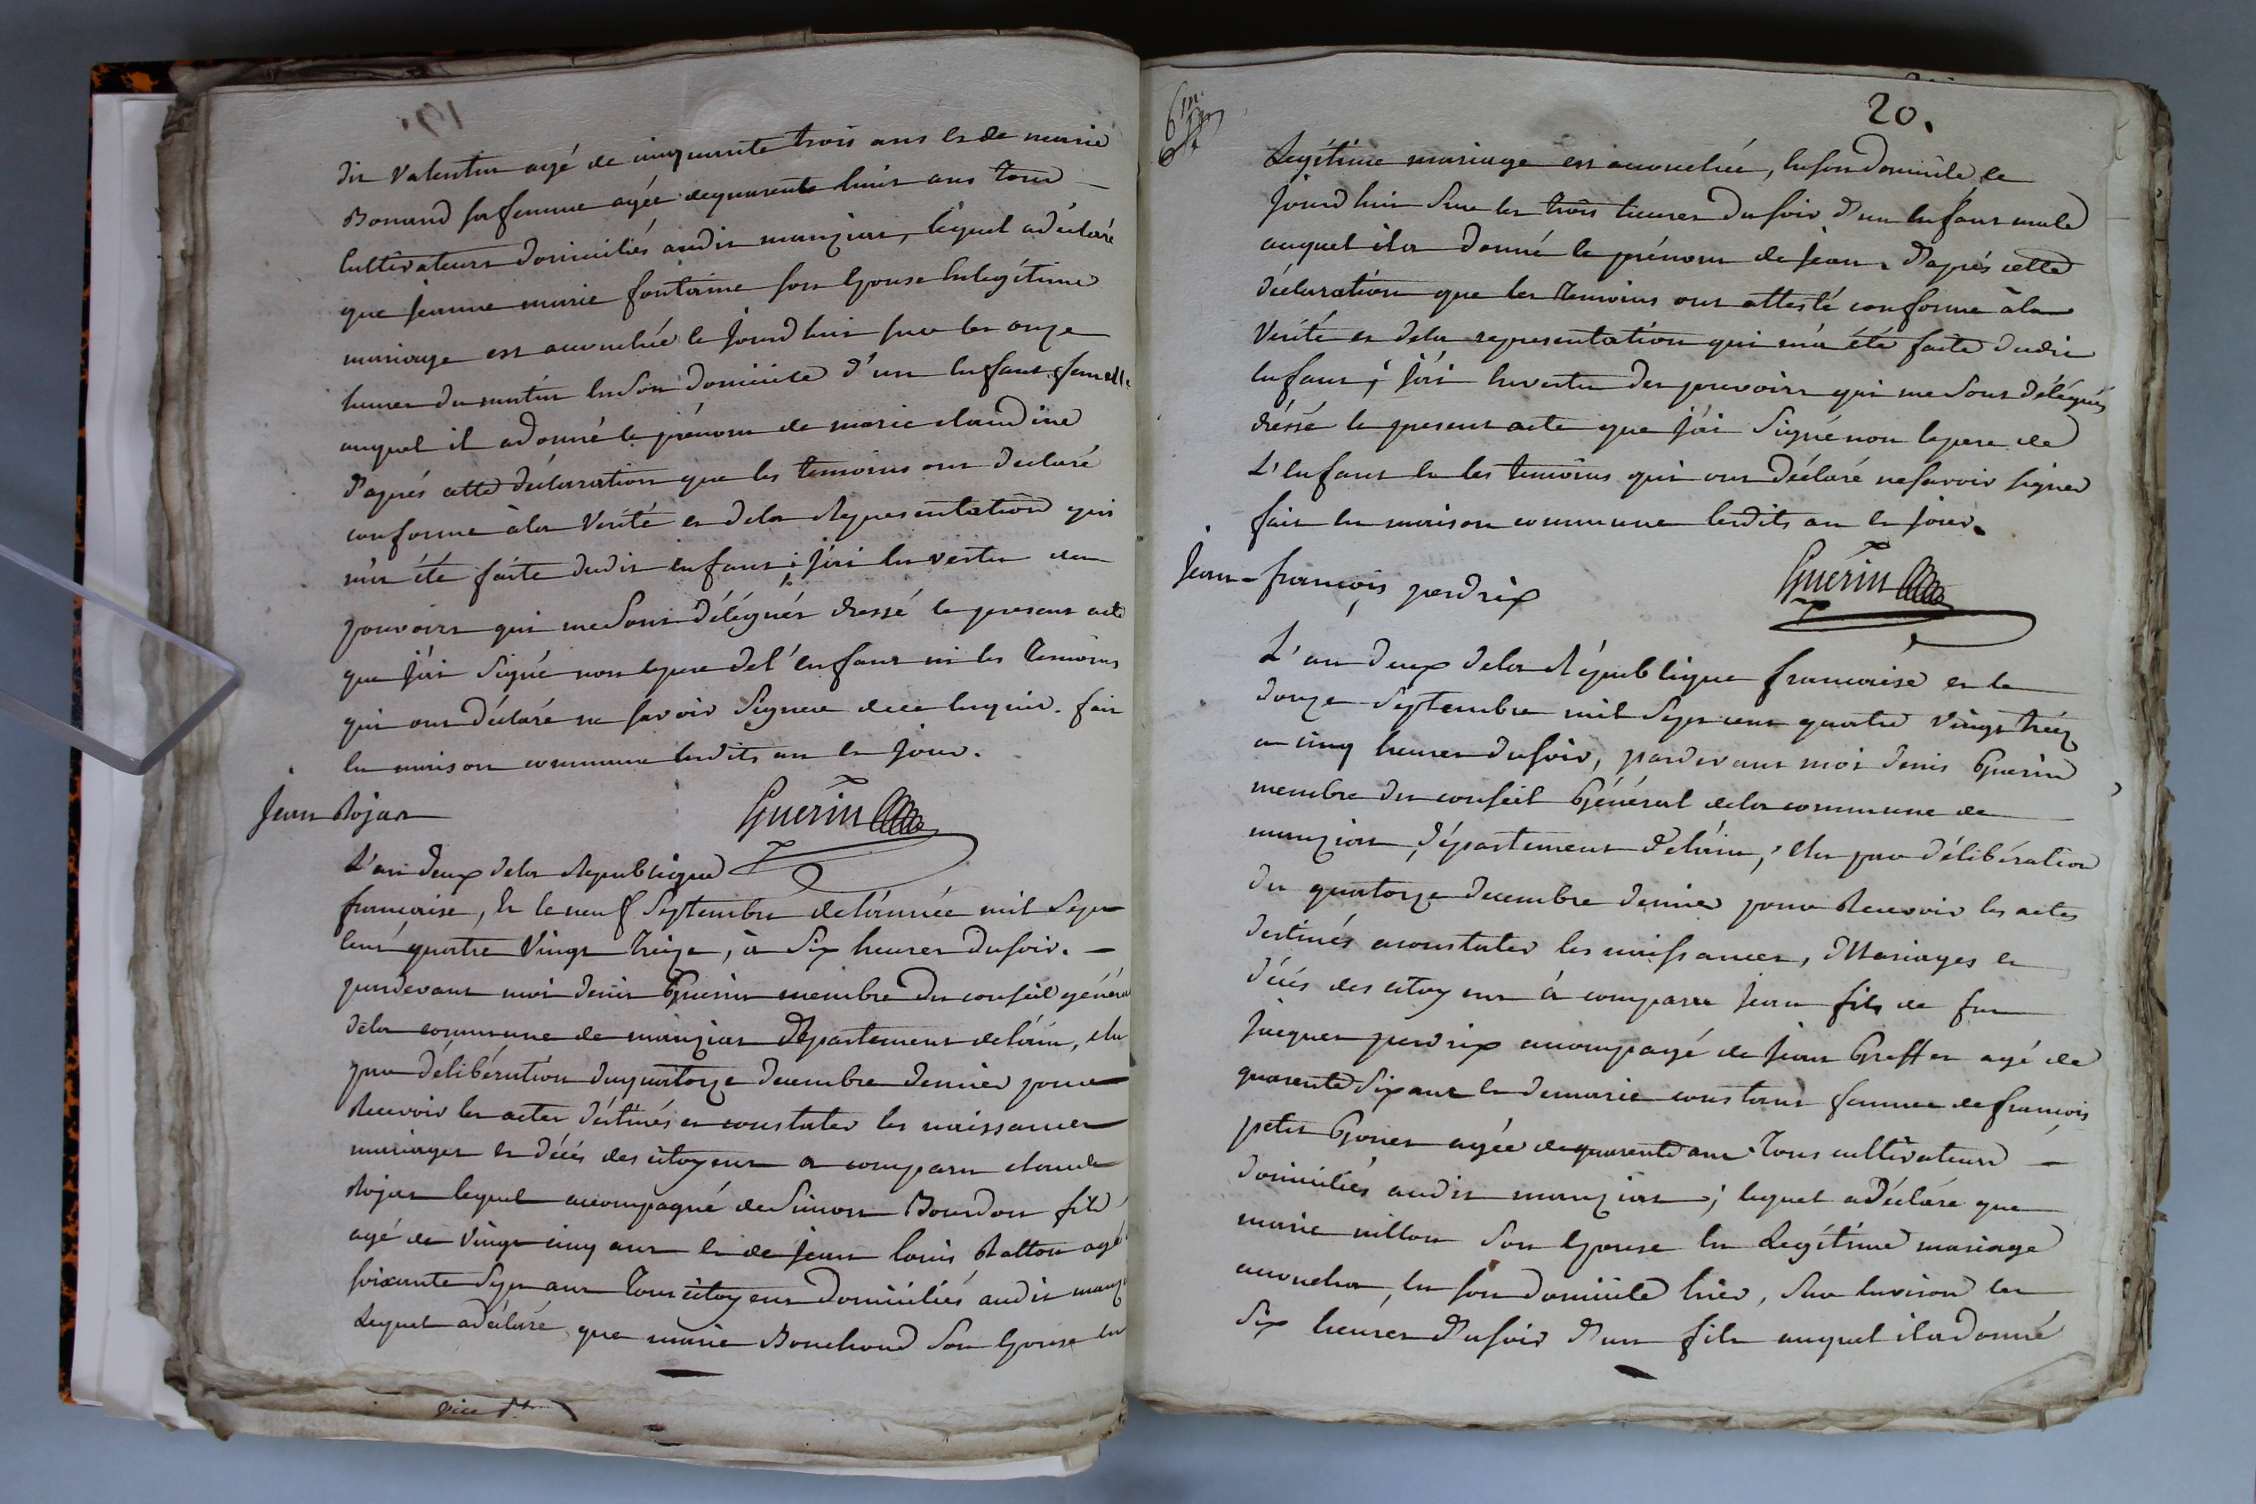 dit valentin agé de cinquante trois ans et de marie
Bonand sa femme agée dequarente huit ans Tous
Cultivateurs domiciliés audit manziat, lequel adéclaré
que jeanne marie fontaine son Epouse En legitime
mariage est accouchée le jourd'hui sur les onze
heures du matin En son domicile d'un Enfant femelle
auquel il adonné le prénom de marie claudine
d'aprés cette déclaration que les temoins ont declaré
conforme àla Verité et dela Representation qui
m'a été faite dudit enfant; j'ai En vertu des
pouvoirs qui meSont délégués dressé le present acte
que j'ai Signé non lepere del'enfant ni les Temoins
qui ont déclaré ne savoir Signer dece Enquis. fait
En maison commune Lesdits an et jour.
Jean Rojat
Guerin
L'an deux dela Republique
francaise, Et le neuf Septembre del'année mil Sept
Cent quatre Vingt Treize, à Six heures Dusoir.
pardevant moi denis Guerin membre du conseil général
dela commune de manziat Département delain, elu
par délibération duquatorze decembre dernier pour
Recevoir les actes déstinés a constater les naissances
mariages et décés des citoyens a comparu claude
Rojat lequel accompagné deSimon Bourdon fils
agé de Vingt cinq ans Et de jean louis Ratton agé
soixante Sept ans Tous citoyens domiciliés audit manz
Lequel adéclaré que marie Bouchoud Son Epouse En
20.
Legitime mariage est accouchée, En son domicile le
jourd'hui Sur les trois heures du soir d'un Enfant male
auquel il a donné le prénom de jean. d'aprés cette
déclaration que les Temoins ont attesté conforme àla
Vérité et dela representation qui m'a été faite dudit
enfant; j'ai Envertu des pouvoirs qui me Sont délégués
dréssé le present acte que j'ai Signé non lepere de
L'enfant Et les temoins qui ont déclaré nesavoir signer
fait En maison commune Lesdits an Et jour.
Jean-françois perdrix
Guerin
L'an deux dela République francaise et le
douze Septembre mil Sept cent quatre Vingt treiz
a cinq heures dusoir, pardevant moi denis Guerin
membre du conseil Général dela commune de
manziat, département delain, Elu par délibération
du quatorze decembre dernier pour Recevoir les actes
destinés aconstater les naissances, Mariages et
décés des citoyens à comparu jean fils de feu
jacques perdrix accompagné de jean Greffet agé de
quarente Six ans Et demarie constant femme defrancois
petit Goner agée dequarente ans Tous cultivateurs
domiciliés audit manziat; lequel adéclaré que
marie millon Son Epouse En Legitime mariage
accoucha, En son domicile hier, Sur Environ les
Six heures dusoir d'un fils auquel il a donné